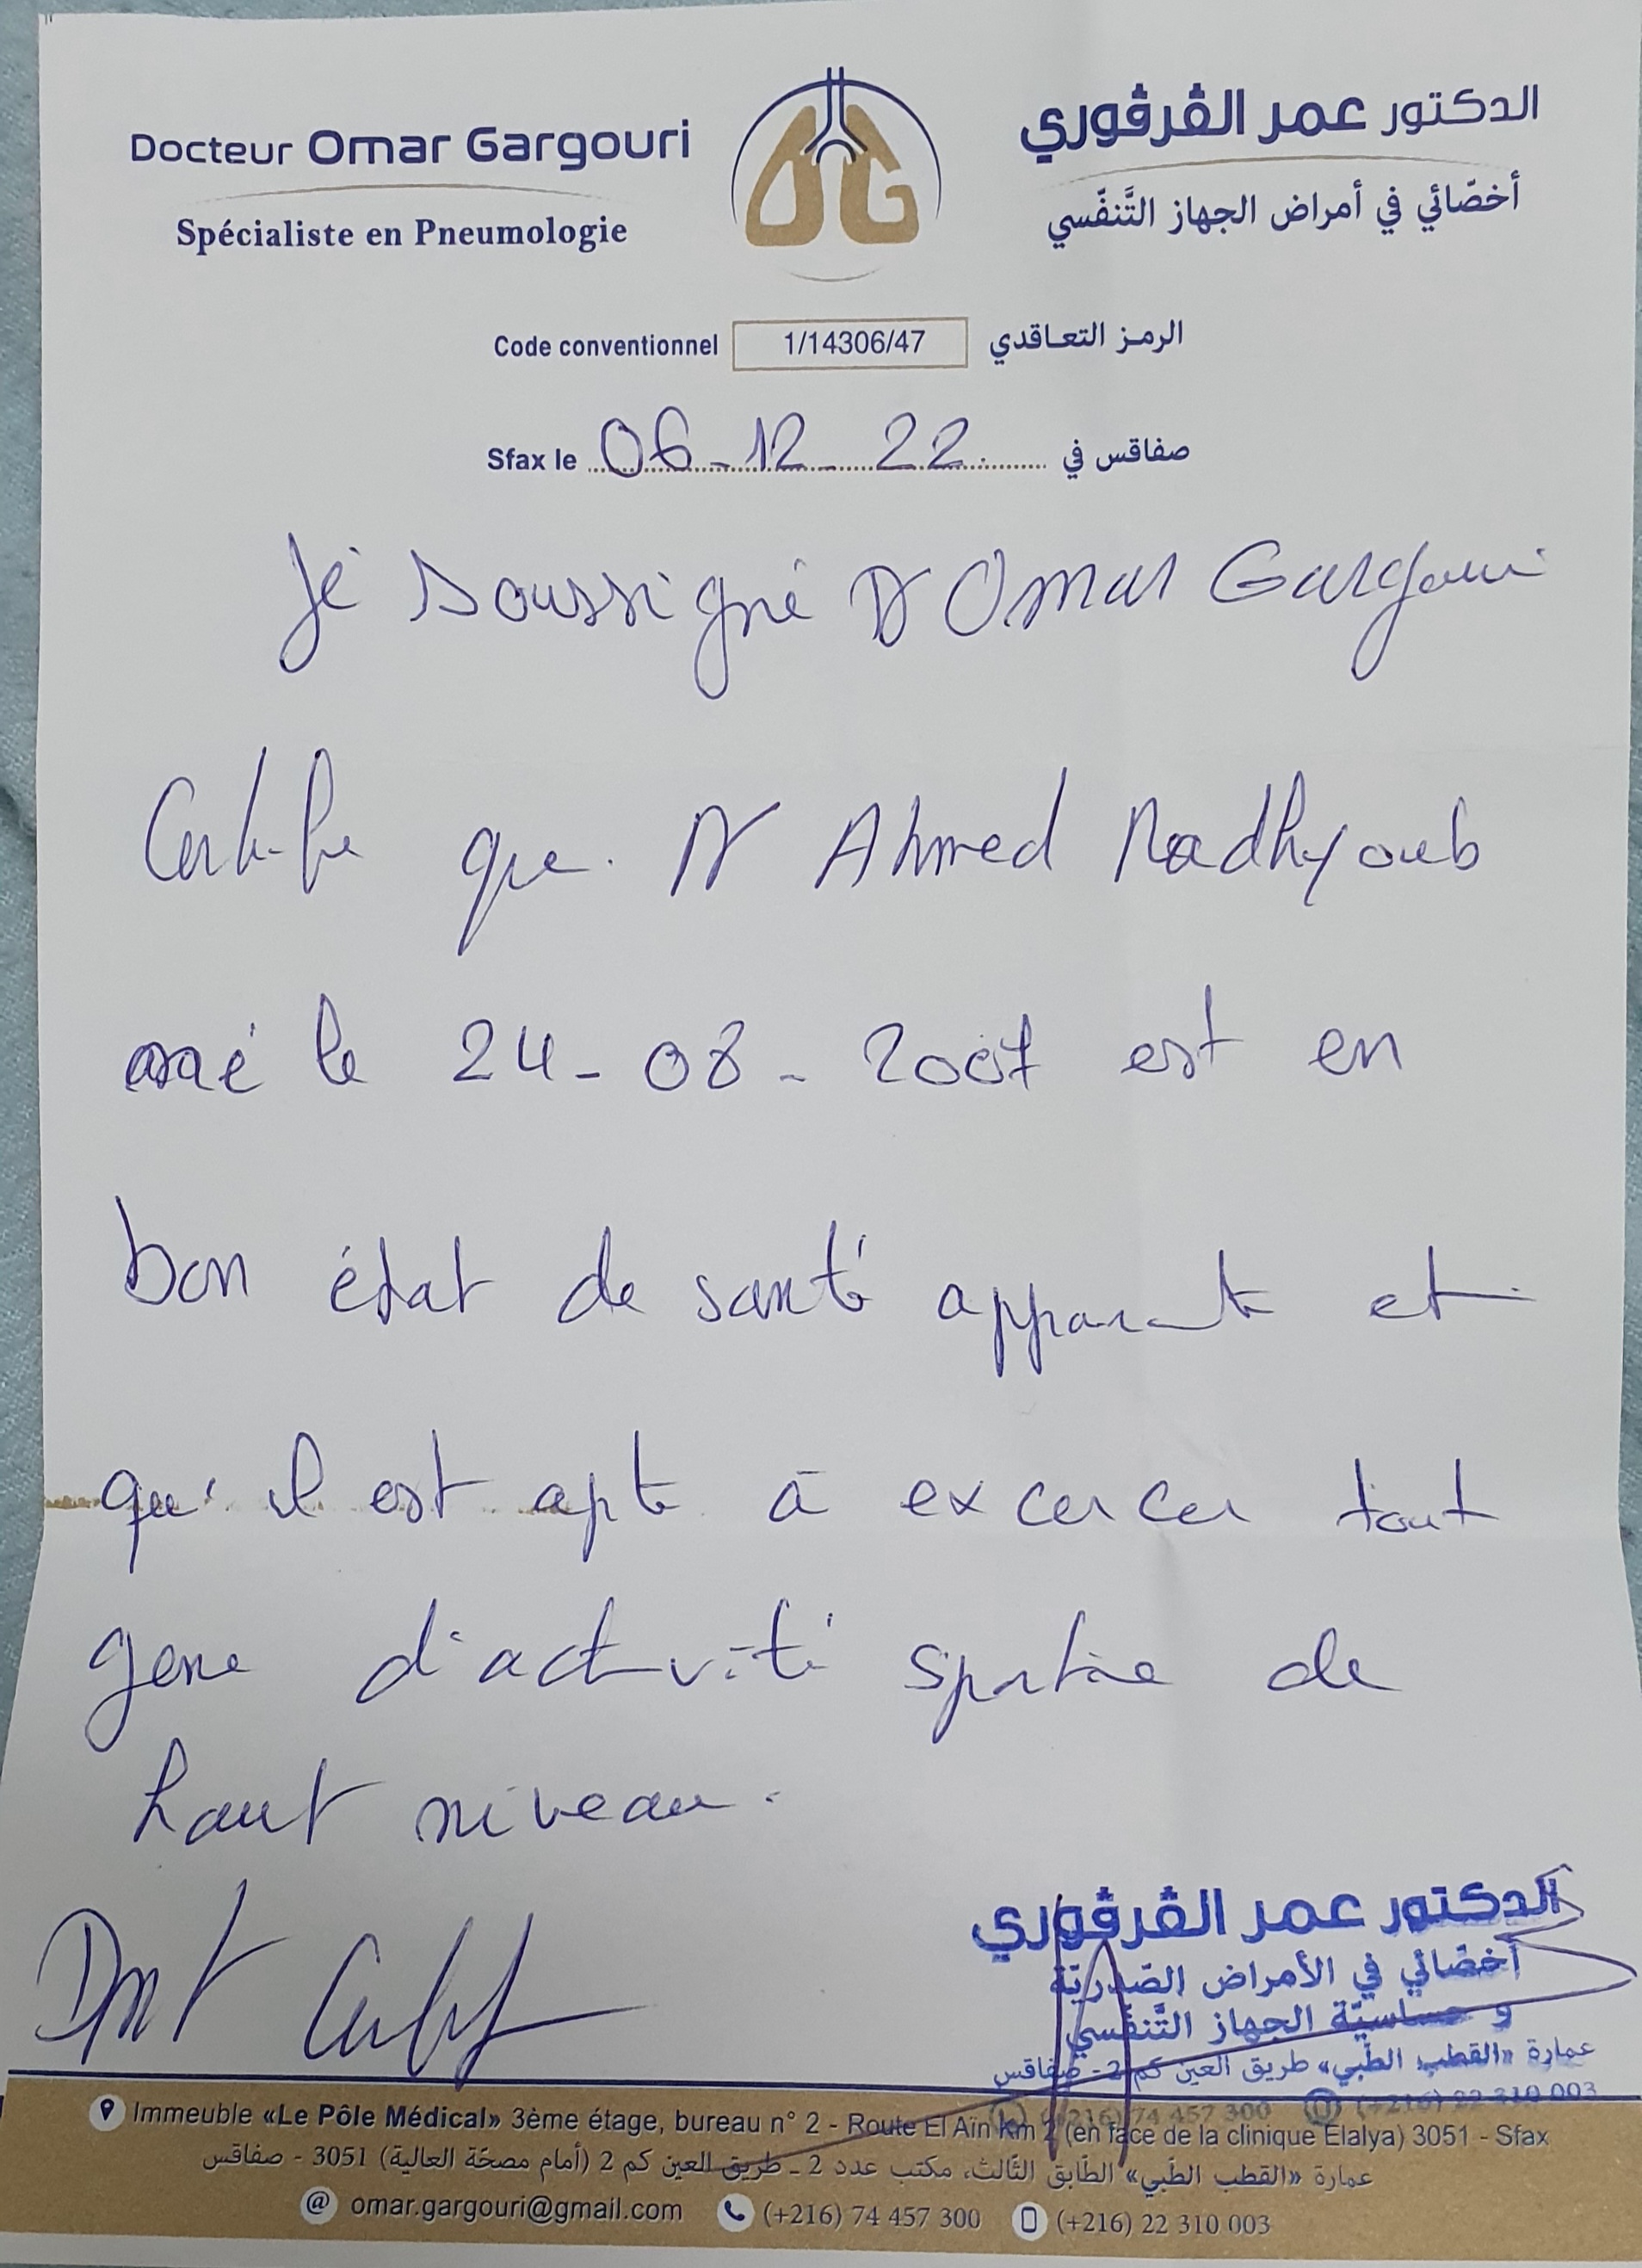 Docteur Omar Gargouri
Spécialiste en Pneumologie
OG
الدكتور عمر الڨرڨوري
أخصّائي في أمراض الجهاز التَّنفّسي
Code conventionnel 1/14306/47 الرمز التعاقدي
Sfax le 06-12-22 صفاقس في
Je soussigné Dr Omar Gargouri
Certifie que Mr Ahmed Madhyoub
né le 24-08-2007 est en
bon état de santé apparente et
qu'il est apte à excercer tout
genre d'activité sportive de
haut niveau.
الدكتور عمر الڨرڨوري
أخصّائي في الأمراض الصّدريّة
و حساسيّة الجهاز التَّنفّسي
عمارة «القطب الطّبي» طريق العين كم 2 - صفاقس
(+216) 74 457 300 (+216) 22 310 003
Immeuble «Le Pôle Médical» 3ème étage, bureau n° 2 - Route El Aïn Km 2 (en face de la clinique Elalya) 3051 - Sfax
عمارة «القطب الطّبي» الطّابق الثّالث، مكتب عدد 2 - طريق العين كم 2 (أمام مصحّة العالية) 3051 - صفاقس
omar.gargouri@gmail.com (+216) 74 457 300 (+216) 22 310 003